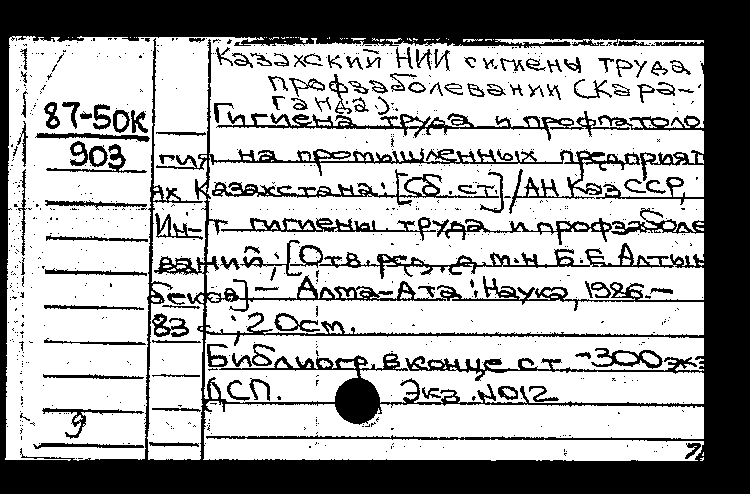 Казахский НИИ гигиены труда
профзаболевании (Кара-
ганда).
87-50К
903
Гигиена труда и профпатоло
гия на промышленных предприят
ях Казахстана: [Сб. ст.] / АН КазССР,
Ин-т гигиены труда и профзаболе
ваний; [Отв. ред. д.м.н. Б.Е. Алтын
беков]. — Алма-Ата: Наука, 1986. —
83 с.; 20 см.
Библиогр. в конце ст. - 300 экз
ДСП. Экз. №012
9